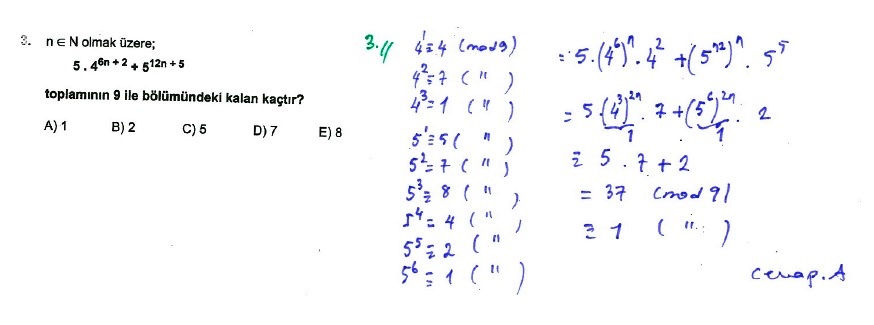 3. n ∈ N olmak üzere;
5 . 4^{6n + 2} + 5^{12n + 5}
toplamının 9 ile bölümündeki kalan kaçtır?
A) 1 B) 2 C) 5 D) 7 E) 8
3.//
4^1 ≡ 4 (mod 9)
4^2 = 7 ( " )
4^3 = 1 ( " )
5^1 ≡ 5 ( " )
5^2 = 7 ( " )
5^3 ≡ 8 ( " )
5^4 = 4 ( " )
5^5 ≡ 2 ( "
5^6 ≡ 1 ( " )
= 5 . (4^6)^n . 4^2 + (5^{12})^n . 5^5
= 5 . (4^3)^{2n} . 7 + (5^6)^{2n} . 2
1 1
≡ 5 . 7 + 2
= 37 (mod 9)
≡ 1 ( " )
Cevap. A